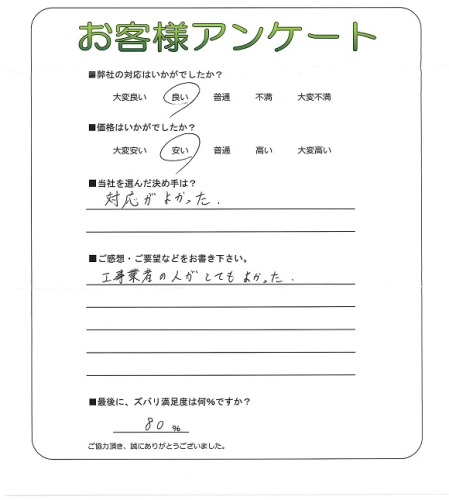 お客様アンケート
■弊社の対応はいかがでしたか？
大変良い 良い 普通 不満 大変不満
■価格はいかがでしたか？
大変安い 安い 普通 高い 大変高い
■当社を選んだ決め手は？
対応がよかった.
■ご感想・ご要望などをお書き下さい。
工事業者の人がとてもよかった.
■最後に、ズバリ満足度は何％ですか？
80 %
ご協力頂き、誠にありがとうございました。